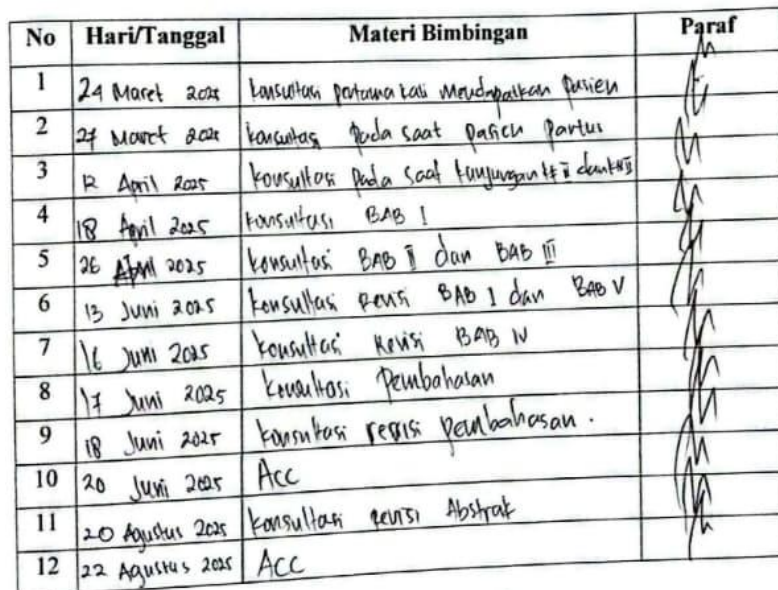 No Hari/Tanggal Materi Bimbingan Paraf
1 24 Maret 2025 konsultasi pertama kali mendapatkan pasien
2 27 Maret 2025 konsultasi pada saat pasien partus
3 12 April 2025 konsultasi pada saat kunjungan KF II dan KN II
4 18 April 2025 konsultasi BAB I
5 26 April 2025 konsultasi BAB II dan BAB III
6 13 Juni 2025 konsultasi Revisi BAB I dan BAB V
7 16 Juni 2025 konsultasi Revisi BAB IV
8 17 Juni 2025 konsultasi Pembahasan
9 18 Juni 2025 konsultasi revisi pembahasan.
10 20 Juni 2025 Acc
11 20 Agustus 2025 konsultasi revisi Abstrak
12 22 Agustus 2025 ACC